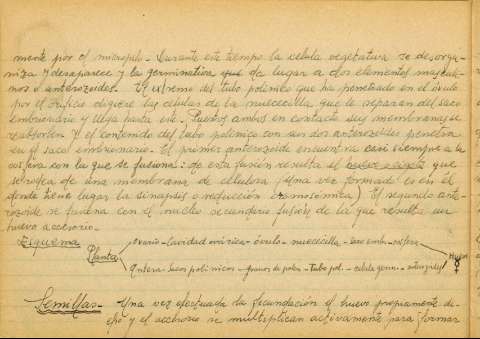 mente por el micropilo - Durante este tiempo la celula vegetativa se desorga-
niza y desaparece y la germinativa que da lugar a dos elementos mascul-
nos o anterozoides. El extremo del tubo polinico que ha penetrado en el óvulo
por el orificio digiere las celulas de la nuececilla que le separan del saco
embrionario y llega hasta este. Puestos ambos en contacto sus membranas se
reabsorben y el contenido del tubo polinico con sus dos anterozoides penetra
en el saco embrionario. El primer anterozoide encuentra casi siempre a la
oosfera con la que se fusiona: de esta fusión resulta el huevo o cigoto que
se rodea de una membrana de celulosa (Una vez formado es en él
donde tiene lugar la sinapsis o reducción cromosómica) El segundo ante-
rozoide se fusiona con el nucleo secundario fusión de la que resulta un
huevo accesorio.
Esquema
Planta
Ovario - Cavidad ovárica - óvulo - nuececilla - saco emb. - oosfera
Huevo
Antera - sacos polinicos - granos de polen - Tubo pol. - celula germ. -
Semillas - Una vez efectuada la fecundación el huevo propiamente di-
cho y el accesorio se multiplican activamente para formar